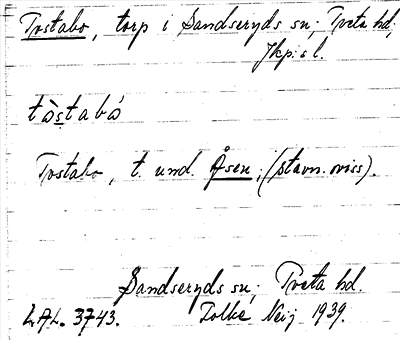 Tostabo, torp i Sandseryds sn; Tveta hd;
Jkp:s l.
tòstabó
Tostabo, t. und. Åsen; (stavn. oviss).
Sandseryds sn; Tveta hd.
LAL. 3743. Folke Neij 1939.